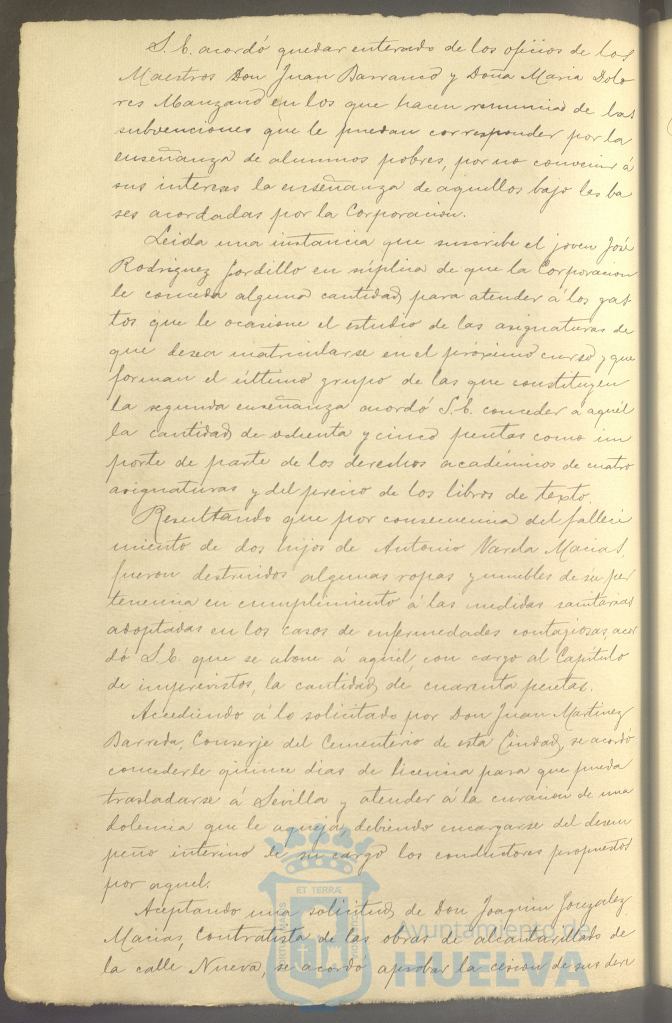 S. E. acordó quedar enterado de los oficios de los
Maestros Don Juan Barranco y Doña Maria Dolo
res Manzano en los que hacen renuncia de las
subvenciones que le puedan corresponder por la
enseñanza de alumnos pobres, por no convenir á
sus intereses la enseñanza de aquellos bajo las ba
ses acordadas por la Corporación.
Leida una instancia que suscribe el joven José
Rodriguez Gordillo en súplica de que la Corporacion
le conceda alguna cantidad para atender á los gas
tos que le ocasione el estudio de las asignaturas de
que desea matricularse en el próximo curso y que
forman el último grupo de las que constituyen
la segunda enseñanza acordó S. E. conceder a aquél
la cantidad de ochenta y cinco pesetas como im
porte de parte de los derechos académicos de cuatro
asignaturas y del precio de los libros de texto.
Resultando que por consecuencia del falleci
miento de dos hijos de Antonio Varela Macias,
fueron destruidos algunas ropas y muebles de su per
tenencia en cumplimiento á las medidas sanitarias
adoptadas en los casos de enfermedades contagiosas, acor
dó S. E. que se abone á aquél, con cargo al Capitulo
de imprevistos, la cantidad de cuarenta pesetas.
Accediendo á lo solicitado por Don Juan Martinez
Barreda, Conserje del Cementerio de esta Ciudad, se acordó
concederle quince dias de licencia para que pueda
trasladarse á Sevilla y atender á la curacion de una
dolencia que le aqueja, debiendo encargarse del desem
peño interino de su cargo los conductores propuestos
por aquel.
Aceptando una solicitud de Don Joaquin Gonzalez
Macias, contratista de las obras de alcantarillado de
la calle Nueva, se acordó aprobar la cesion de sus dere
ET TERRÆ
PORTUS MARIS
CUSTODIA
Ayuntamiento de
HUELVA